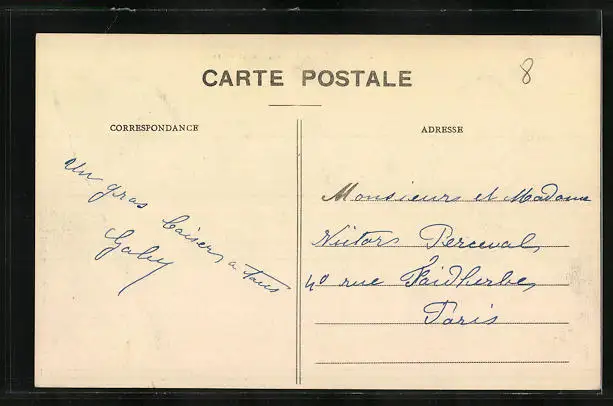 CARTE POSTALE
8
CORRESPONDANCE
ADRESSE
Un gros baiser a tous
Gaby
Monsieur et Madame
Perceval
rue Faidherbe
Paris